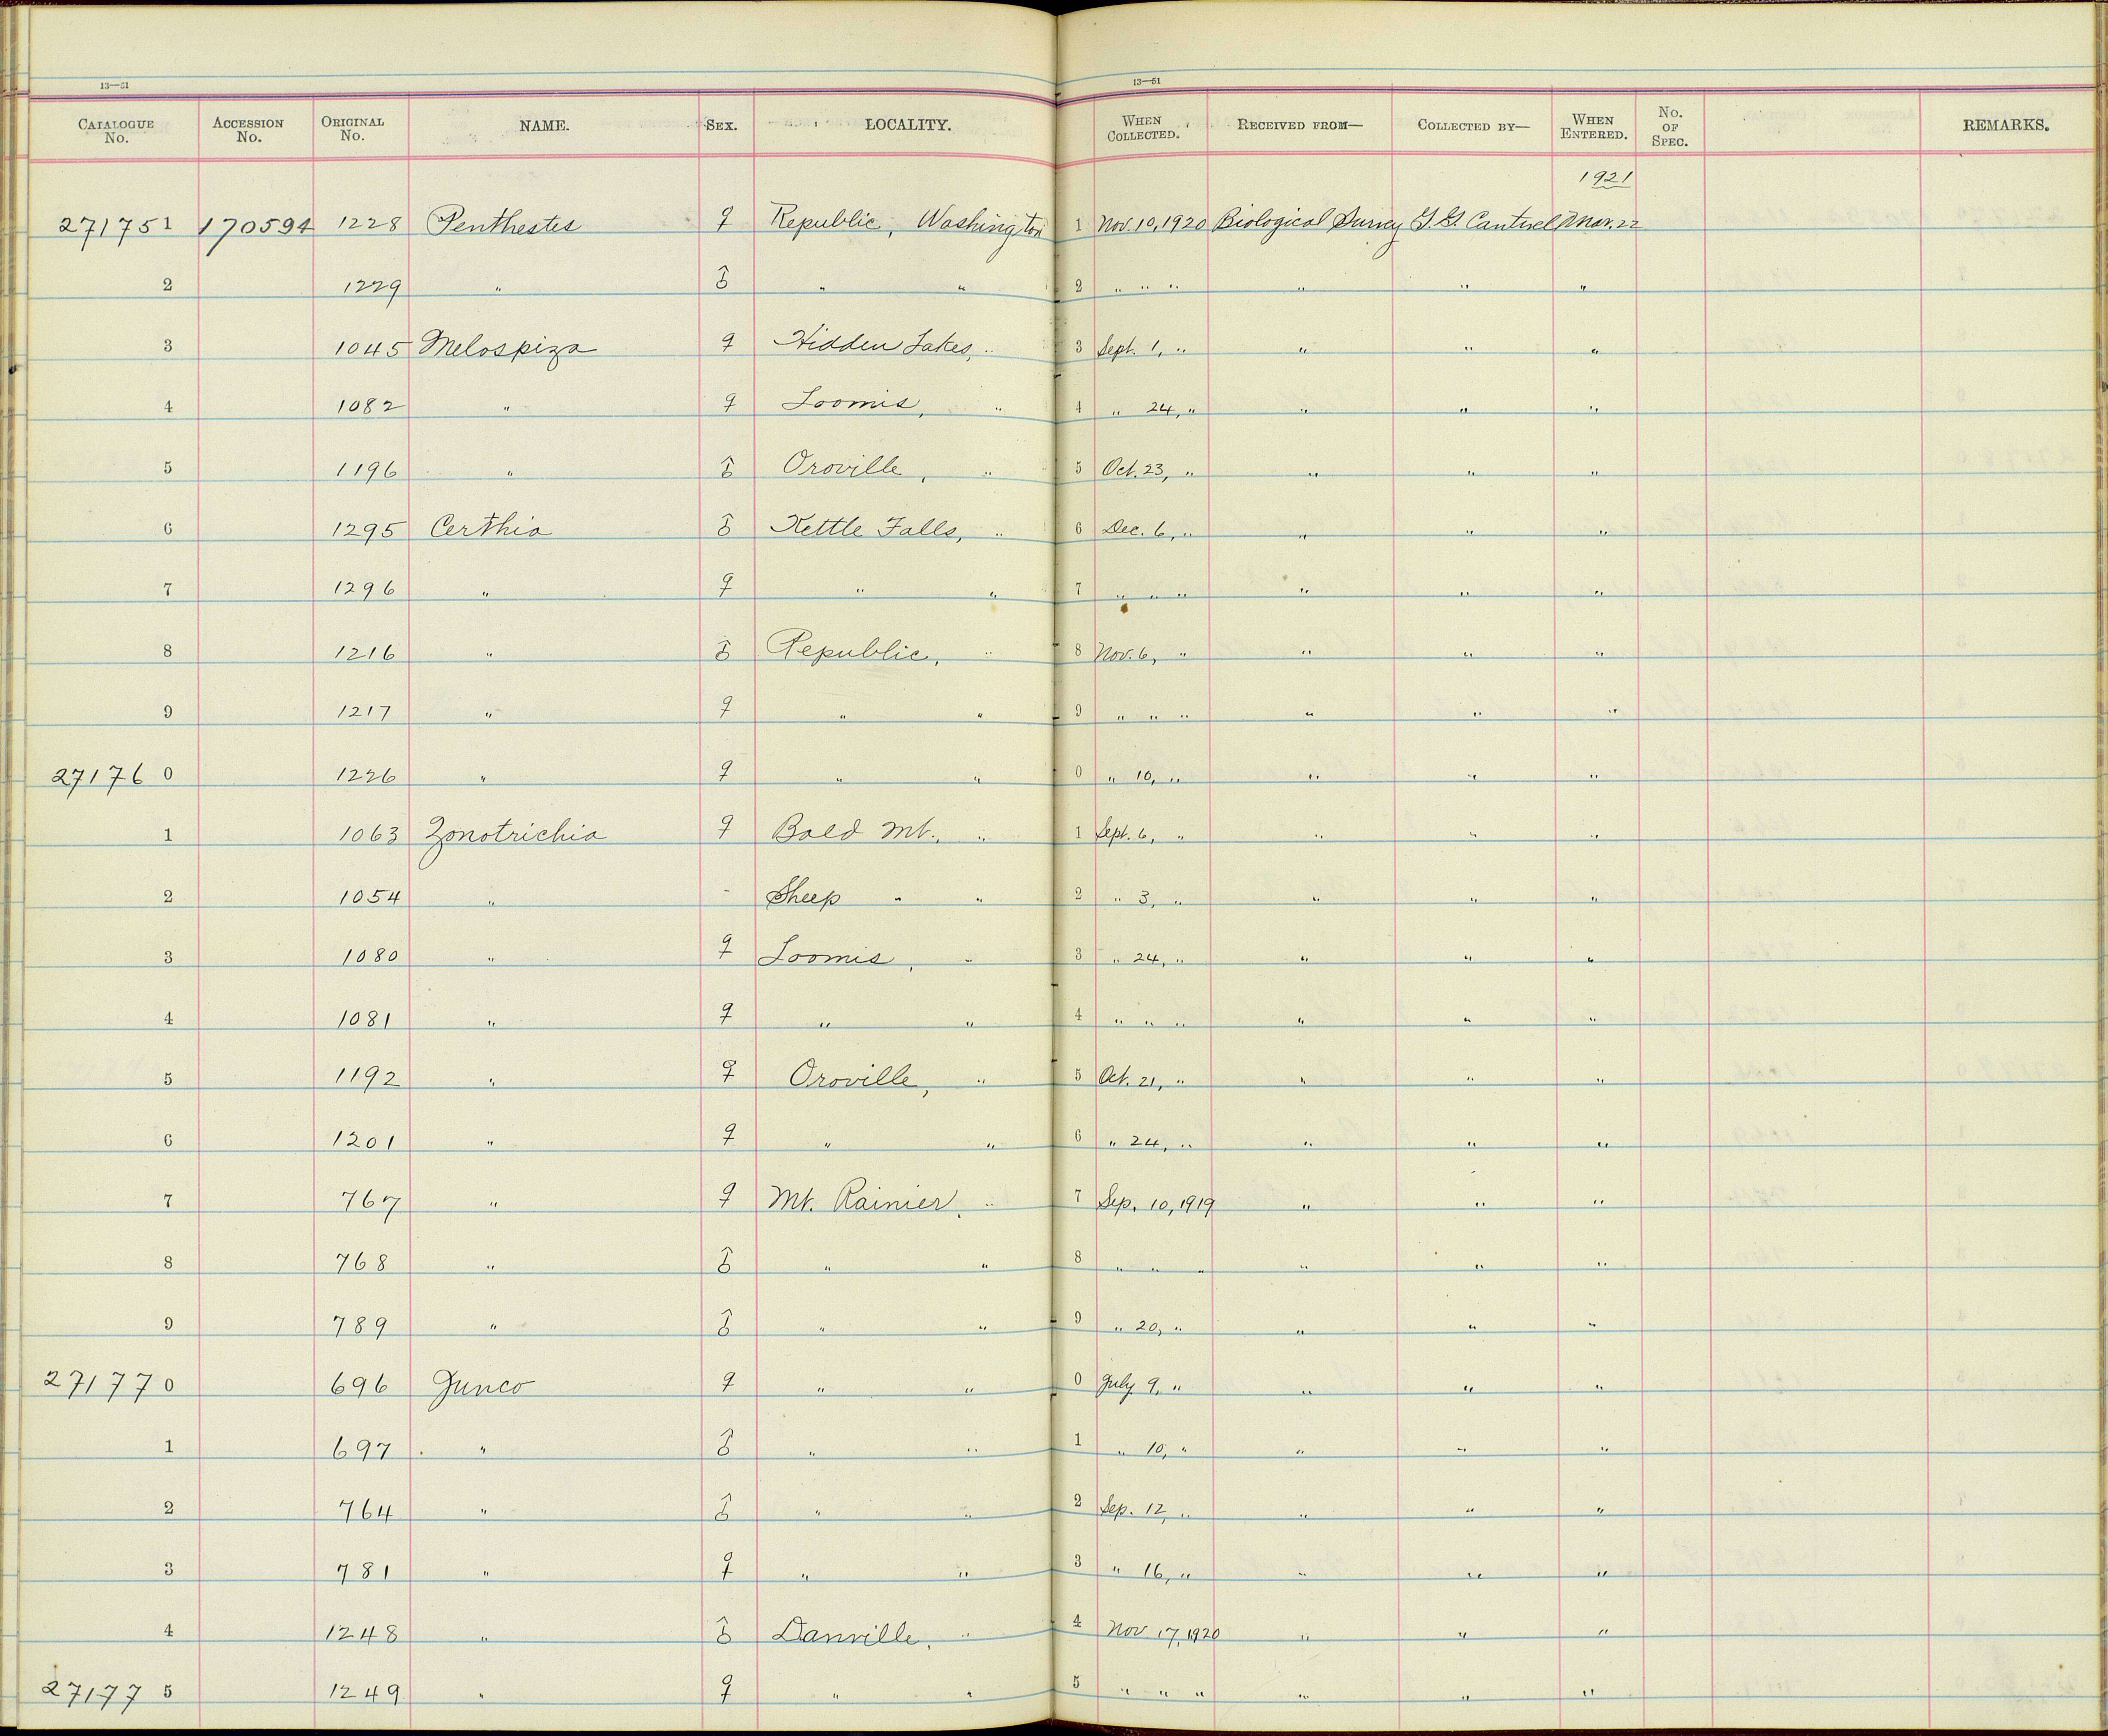 13—51 13—51
CATALOGUE No. ACCESSION No. ORIGINAL No. NAME. SEX. LOCALITY. WHEN COLLECTED. RECEIVED FROM— COLLECTED BY— WHEN ENTERED. No. OF SPEC. REMARKS.
1921
271751 170594 1228 Penthestes ♀ Republic, Washington 1 Nov. 10, 1920 Biological Survey G. G. Cantwell Mar. 22
2 1229 " ♂ " " 2 " " " " " "
3 1045 Melospiza ♀ Hidden Lakes, " 3 Sept. 1, " " " "
4 1082 " ♀ Loomis, " 4 " 24, " " " "
5 1196 " ♂ Oroville, " 5 Oct. 23, " " " "
6 1295 Certhia ♂ Kettle Falls, " 6 Dec. 6, " " " "
7 1296 " ♀ " " 7 " " " " " "
8 1216 " ♂ Republic, " 8 Nov. 6, " " " "
9 1217 " ♀ " " 9 " " " " " "
271760 1226 " ♀ " " 0 " 10, " " " "
1 1063 Zonotrichia ♀ Bald Mt., " 1 Sept. 6, " " " "
2 1054 " - Sheep " " 2 " 3, " " " "
3 1080 " ♀ Loomis, " 3 " 24, " " " "
4 1081 " ♀ " " 4 " " " " " "
5 1192 " ♀ Oroville, " 5 Oct. 21, " " " "
6 1201 " ♀ " " 6 " 24, " " " "
7 767 " ♀ Mt. Rainier, " 7 Sep. 10, 1919 " " "
8 768 " ♂ " " 8 " " " " " "
9 789 " ♂ " " 9 " 20, " " " "
271770 696 Junco ♀ " " 0 July 9, " " " "
1 697 " ♂ " " 1 " 10, " " " "
2 764 " ♂ " " 2 Sep. 12, " " " "
3 781 " ♀ " " 3 " 16, " " " "
4 1248 " ♂ Danville, " 4 Nov 17, 1920 " " "
271775 1249 " ♀ " " 5 " " " " " "